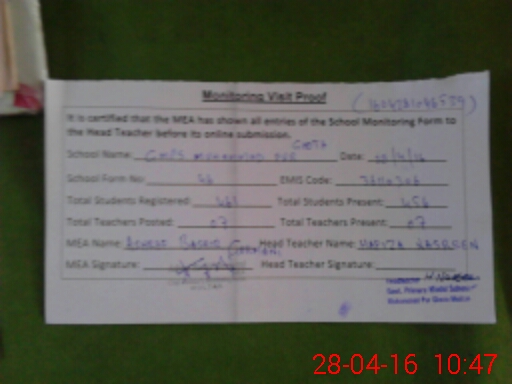 Monitoring Visit Proof
It is certified that the MEA has shown all entries of the School Monitoring Form to
the Head Teacher before its online submission.
School Name: GMPS MUHAMMAD PUR GHOTA Date:
School Form No: 46 EMIS Code:
Total Students Registered: 461 Total Students Present: 456
Total Teachers Posted: 07 Total Teachers Present: 07
MEA Name: Head Teacher Name: NASREEN
MEA Signature: Head Teacher Signature:
Govt. Primary Model School
Muhammad Pur Ghota Multan
28-04-16 10:47